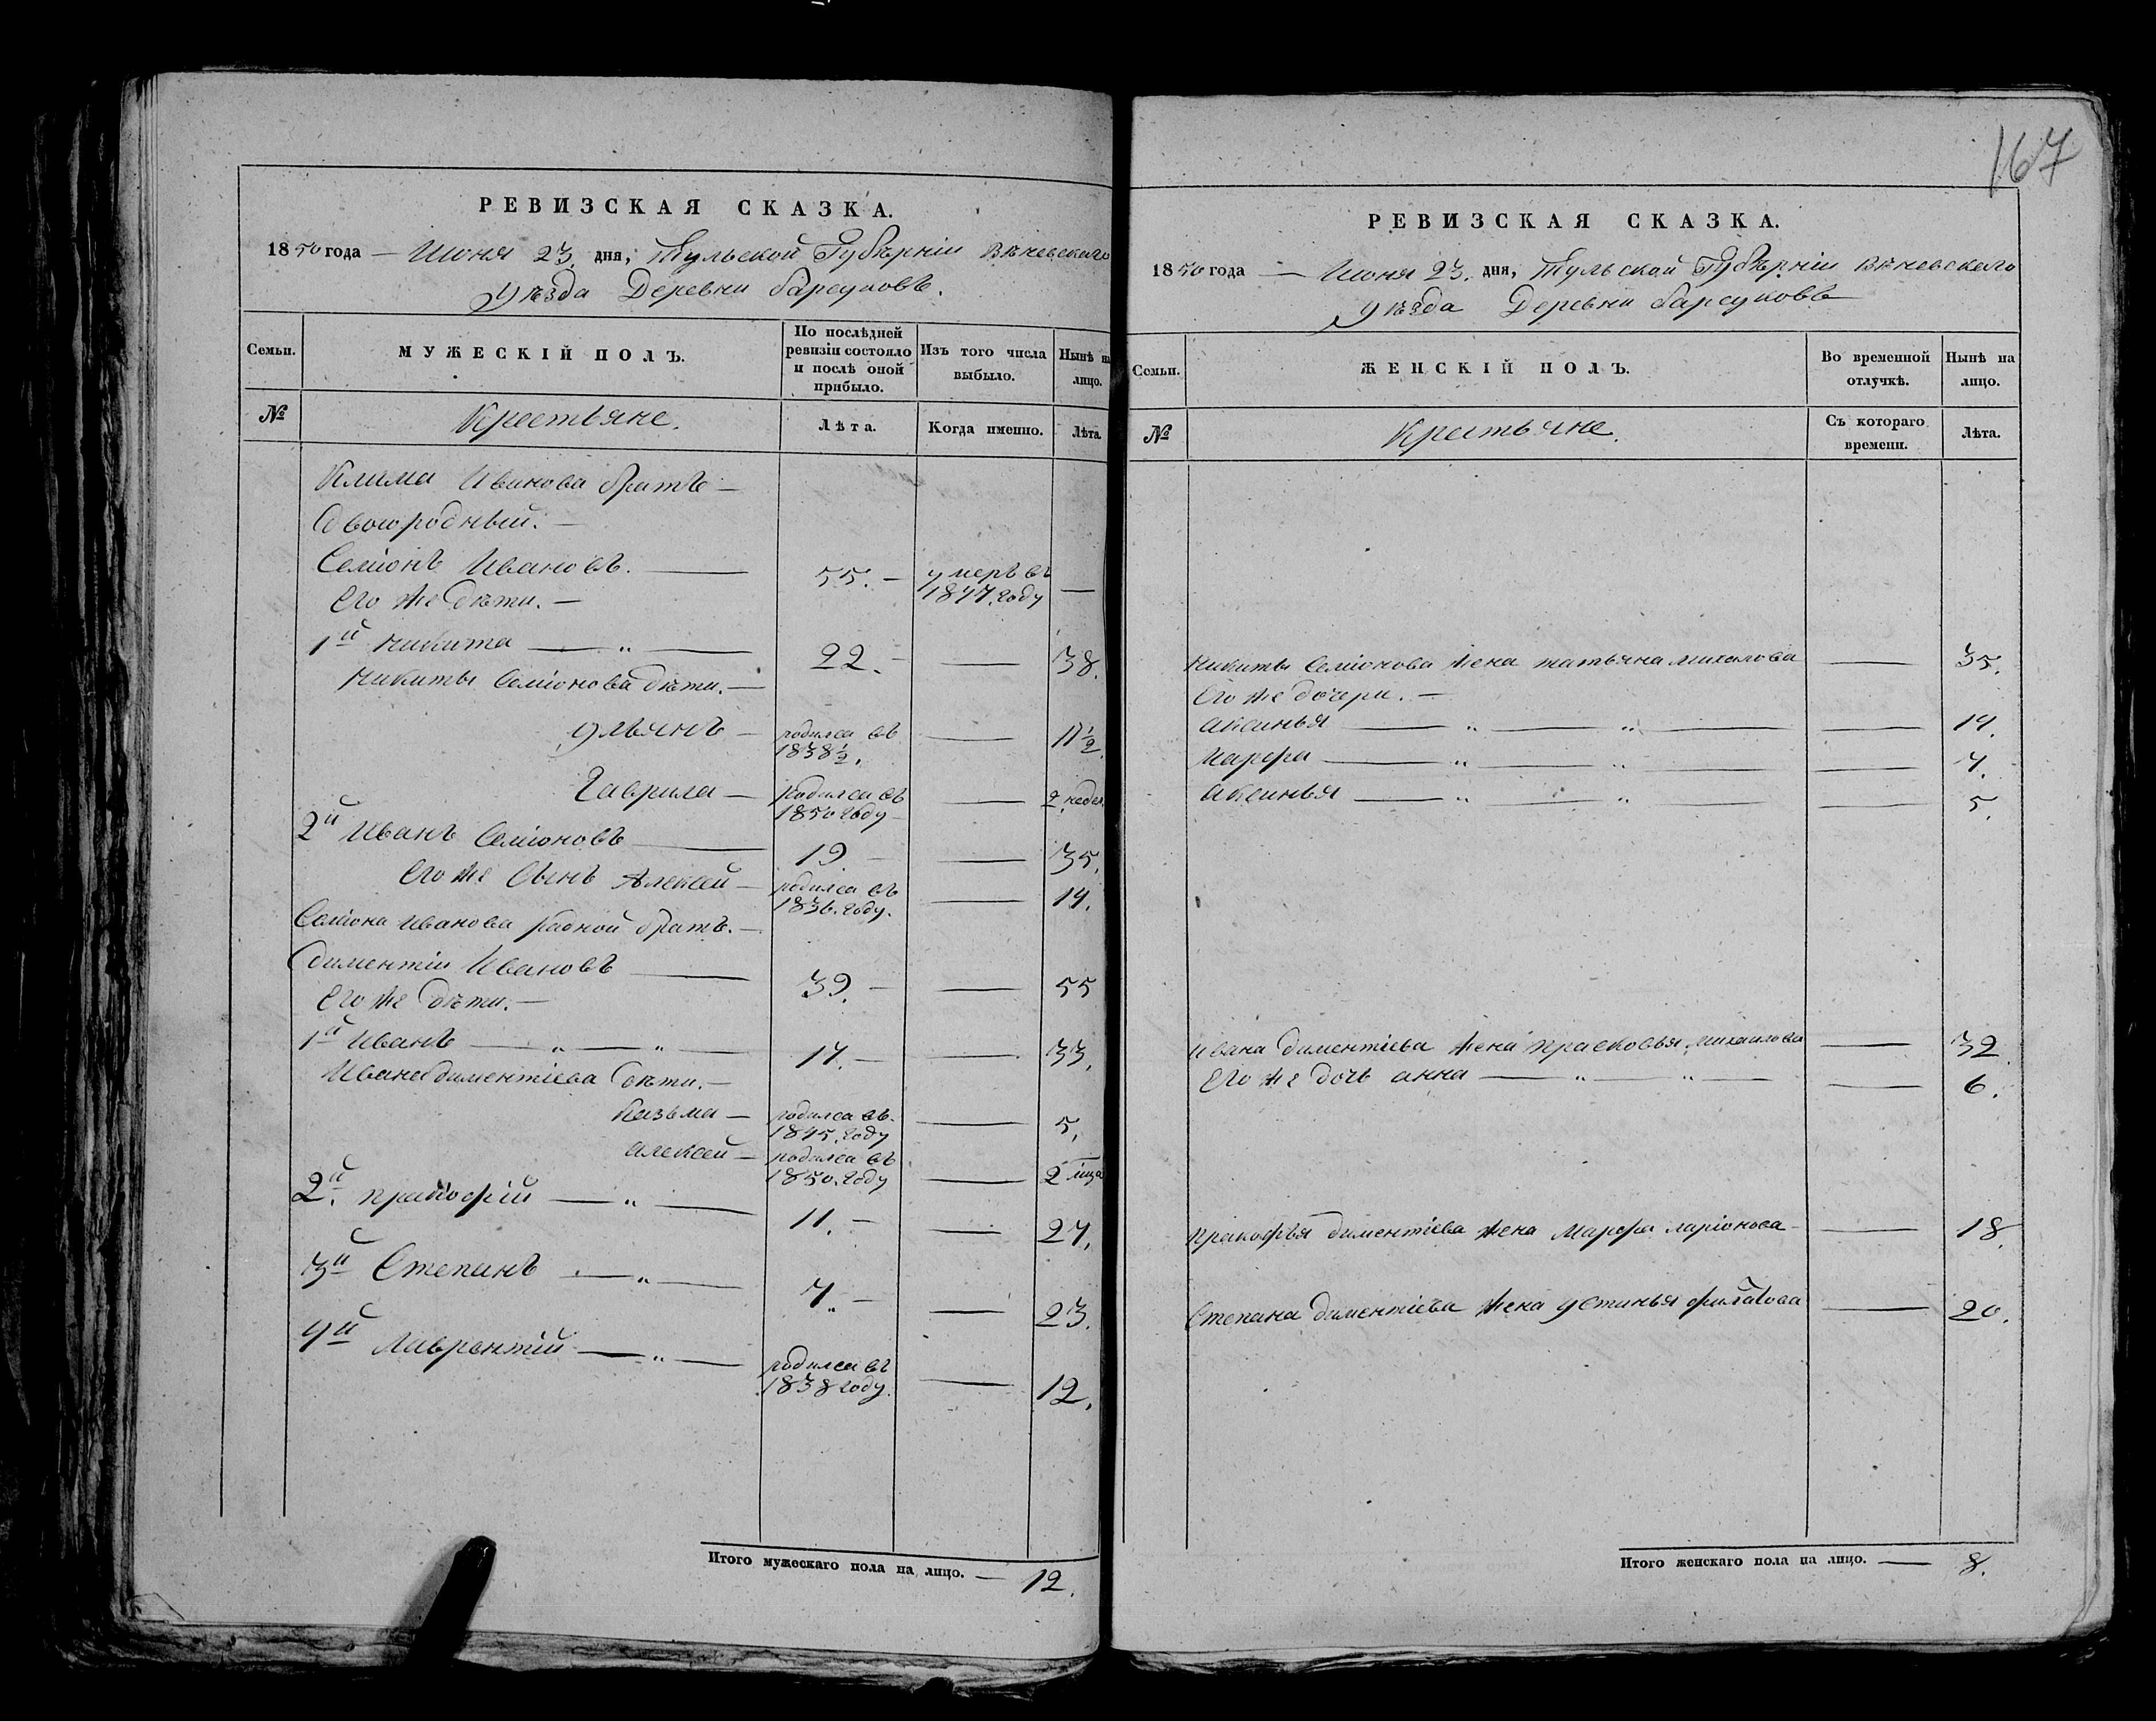 РЕВИЗСКАЯ СКАЗКА.
1850 года — Июня 23. дня, Тульской Губѣрніи Вѣневскаго
Уѣзда Деревни барсуковъ.
Семьи.
МУЖЕСКІЙ ПОЛЪ.
По послѣдней ревизіи состояло и послѣ оной прибыло.
Изъ того числа выбыло.
Нынѣ на лицо.
№
Крестьяне.
Лѣта.
Когда именно.
Лѣта.
Клима Иванова братъ —
Двоюродный. —
Семіонъ Ивановъ. — 55. — умеръ въ 1847. году —
Его же дѣти. —
1й Никита — „ — 22. — — 38.
Никиты Семіонова дѣти. —
Ульянъ — родился въ 1838 1/2. — 11 1/2.
Гаврила — родился въ 1850 году — — 2 недел
2й Иванъ Семіоновъ — 19. — — 35.
Его же Сынъ Алексей — родился въ 1836. году. — 14.
Семіона Иванова радной братъ. —
Диментіи Ивановъ — 39. — — 55
Его же дѣти. —
1й Иванъ — „ — „ — 17. — — 33.
Ивана диментіева дѣти. —
Казьма — родился въ. 1845. году — 5.
алексей — родился въ 1850. году — 2 мца
2й. пракофій — „ — 11. — — 27.
3й Степанъ — „ — 7. — — 23.
4й Лаврентій — „ — родился въ 1838 году. — 12.
Итого мужескаго пола на лицо. — 12.
167
РЕВИЗСКАЯ СКАЗКА.
1850 года — Июня 23. дня, Тульской Губѣрніи Вѣневскаго
уѣзда Деревни барсуковъ
Семьи.
ЖЕНСКІЙ ПОЛЪ.
Во временной отлучкѣ.
Нынѣ на лицо.
№
Крестьяне.
Съ котораго времени.
Лѣта.
Никиты Семіонова жена татьяна михалова — 35.
Его же дочери. —
аксинья — „ — „ — — 14.
Марфа — „ — „ — — 7.
аксинья — „ — „ — — 5.
Ивана диментіева жена прасковья михаилова — 32
Его же дочь анна — „ — „ — — 6.
пракофья диментіева жена Марфа ларіонова — — 18.
Степана диментіева жена устинья филатова — 20.
Итого женскаго пола на лицо. — 8.